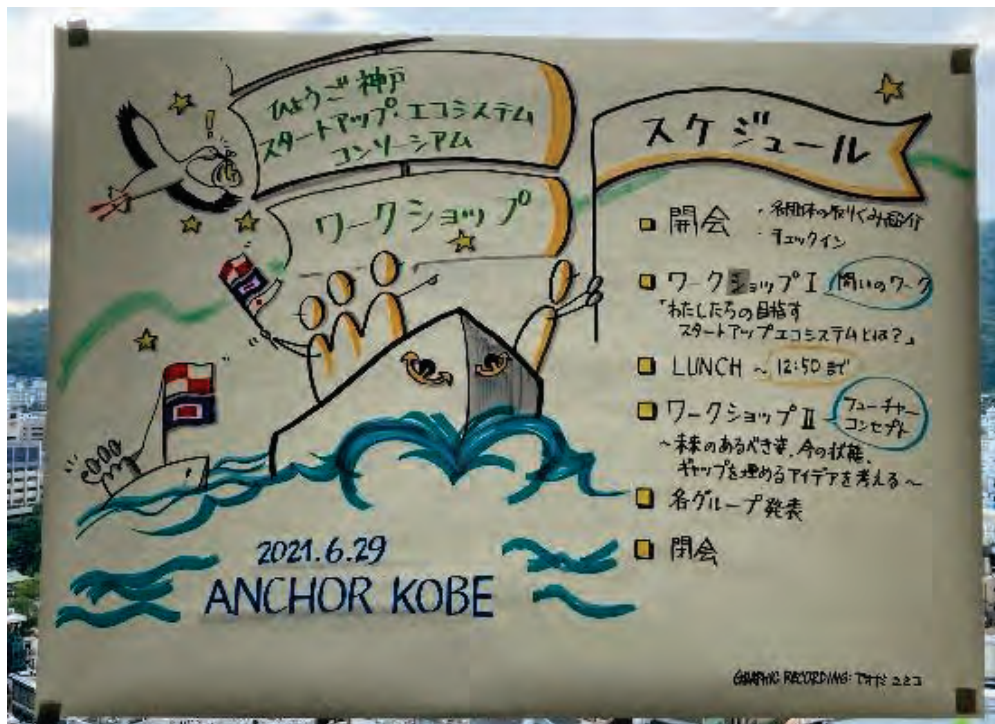 ひょうご神戸
スタートアップ・エコシステム
コンソーシアム
ワークショップ
スケジュール
開会 ・各団体の取りくみ紹介
・チェックイン
ワークショップⅠ 問いのワーク
「わたしたちの目指す
スタートアップエコシステムとは？」
LUNCH ～ 12:50 まで
ワークショップⅡ フューチャー
コンセプト
～未来のあるべき姿、今の状態、
ギャップを埋めるアイデアを考える～
各グループ発表
閉会
2021.6.29
ANCHOR KOBE
GRAPHIC RECORDING: